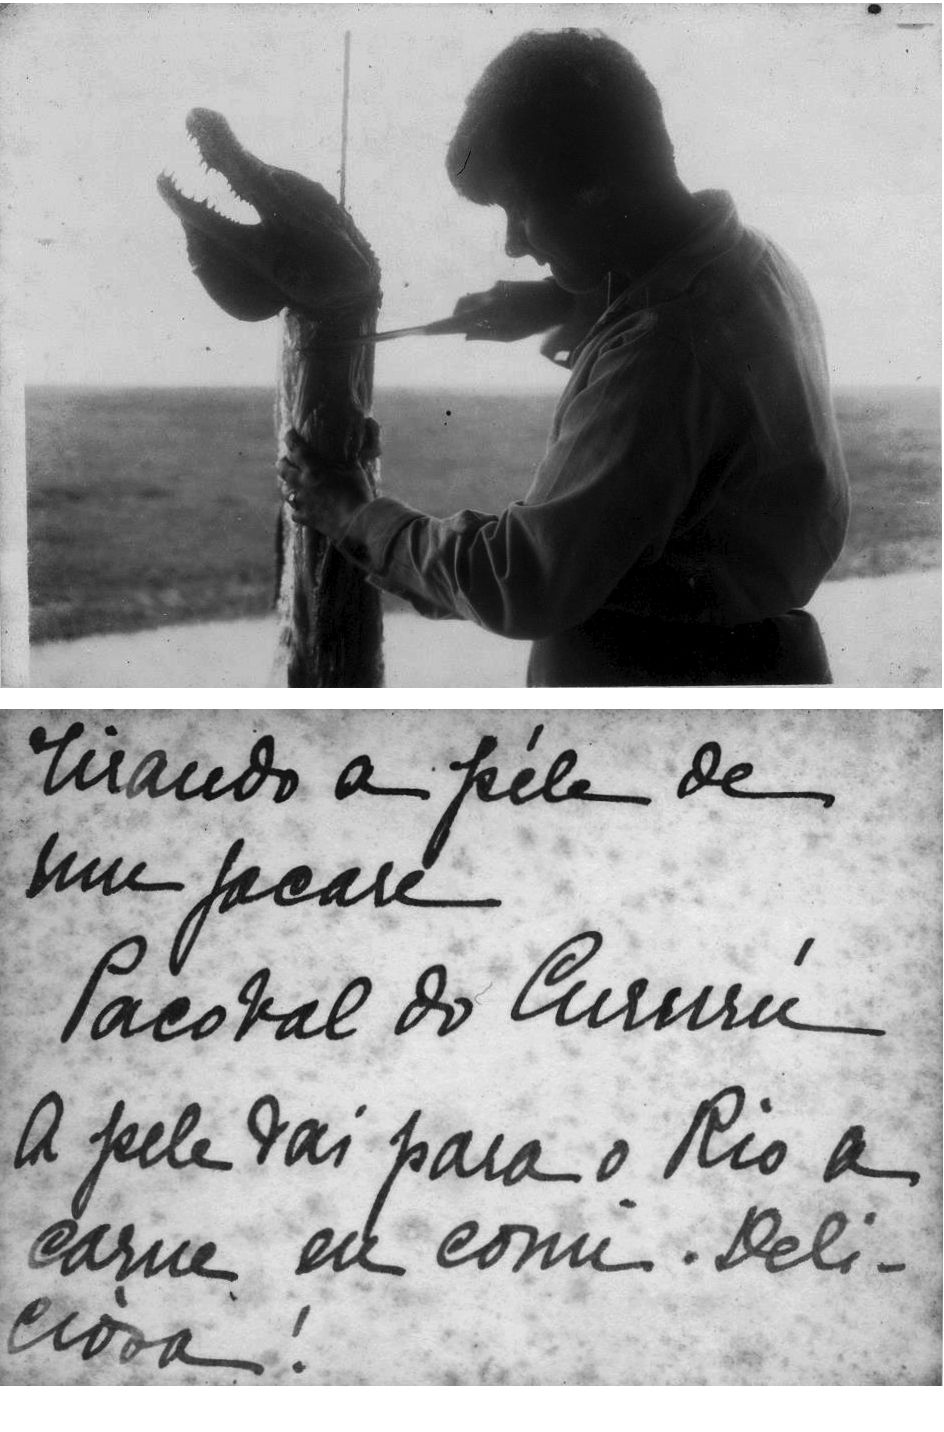 Tirando a péle de
um jacaré
Pacoval do Cururú
A pele vai para o Rio a
carne eu comi. Deli-
ciòsa!